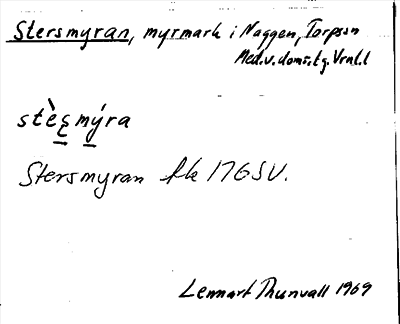 Stersmyran, myrmark i Naggen, Torpssn
Med.v.doms.tg. Vrnl.l
stèʂmýra
Stersmyran fk 17G SV.
Lennart Thunvall 1969